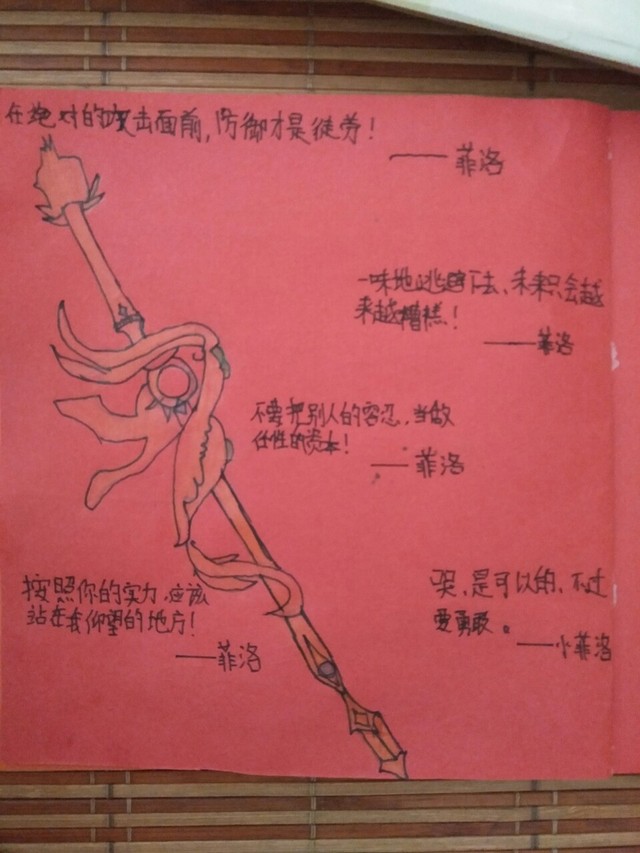 在绝对的攻击面前,防御才是徒劳!
——菲洛
一味地逃避下去、未来只会越
来越糟糕!
——菲洛
不要把别人的容忍,当做
任性的资本!
——菲洛
按照你的实力,应该
站在我仰望的地方!
——菲洛
哭、是可以的、不过
要勇敢。
——小菲洛